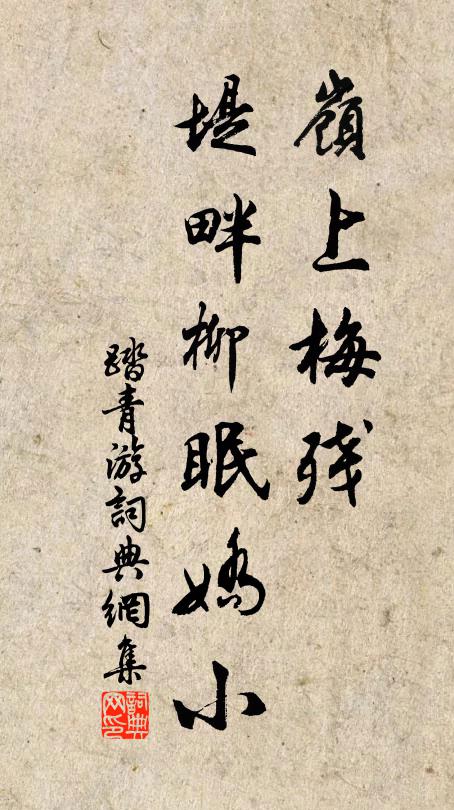 嶺上梅残
堤畔柳眠嬌小
踏青游詞典網集
詞典网印